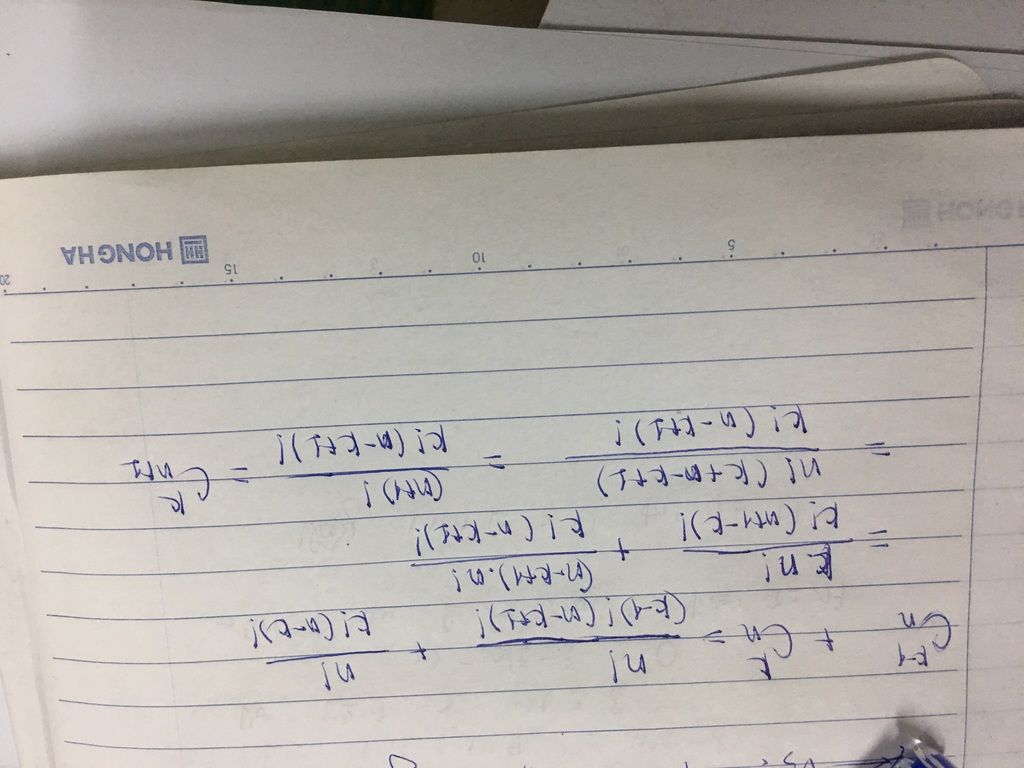 C_n^{k-1} + C_n^k = \frac{n!}{(k-1)!(n-k+1)!} + \frac{n!}{k!(n-k)!}
= \frac{k n!}{k!(n+1-k)!} + \frac{(n-k+1).n!}{k!(n-k+1)!}
= \frac{n!(k+n-k+1)}{k!(n-k+1)!} = \frac{(n+1)!}{k!(n-k+1)!} = C_{n+1}^k
5 10 15 20
HONG HA